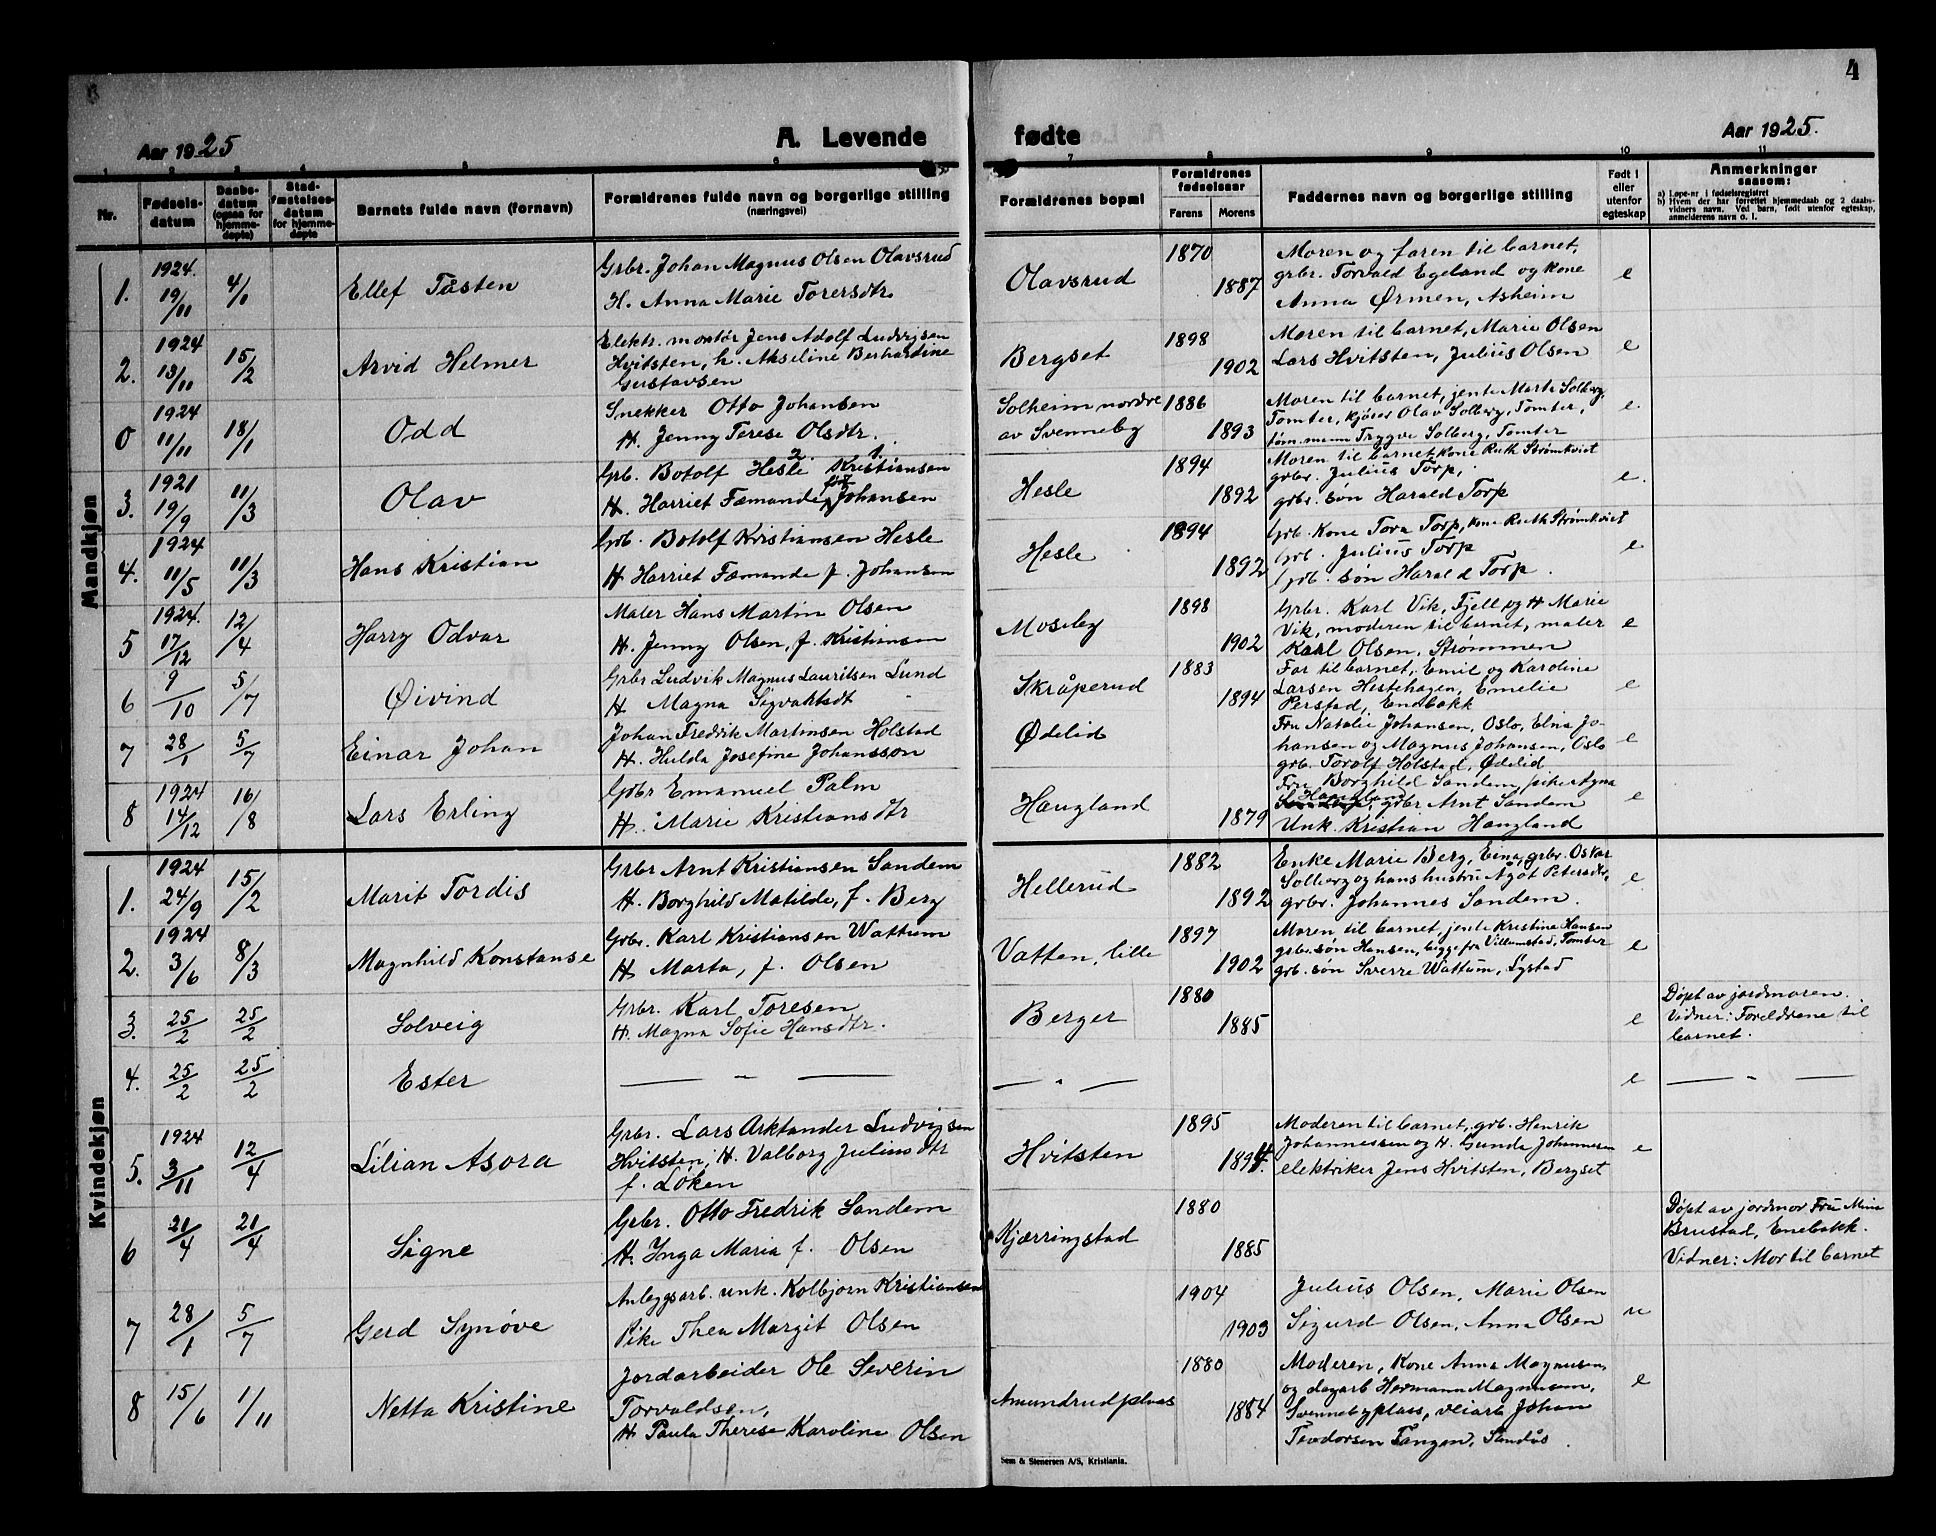 4
Aar 1925
A. Levende
fødte
Aar 1925.
1 2 3 4 5 6 7 8 9 10 11
Nr.
Fødsels-
datum
Daabs-
datum
(ogsaa for
hjemme-
døpte)
Stad-
fæstelses-
datum
for hjemme-
døpte
Barnets fulde navn (fornavn)
Forældrenes fulde navn og borgerlige stilling
(næringsvei)
Forældrenes bopæl
Forældrenes
fødselsaar
Farens Morens
Faddernes navn og borgerlige stilling
Født i
eller
utenfor
egteskap
Anmerkninger
saasom:
a) Løpe-nr. i fødselsregistret
b) Hvem der har forrettet hjemmedaab og 2 daabs-
vidners navn. Ved barn, født utenfor egteskap,
anmelderens navn o. l.
Mandkjøn
1. 1924. 19/11 4/1 Ellef Tåsten
Grbr. Johan Magnus Olsen Olavsrud
H. Anna Marie Torersdtr
Olavsrud 1870 1887
Moren og faren til barnet,
grbr. Torvald Egeland og kone
Anna Ørmen, Asheim
e
2. 1924 13/11 15/2 Arvid Helmer
Elektr. montør Jens Adolf Ludvigsen
Hvitsten, h. Akseline Berhardine
Gustavsen
Bergset 1898 1902
Moren til barnet, Marie Olsen
Lars Hvitsten, Julius Olsen
e
0 1924 11/11 18/1 Odd
Snekker Otto Johansen
H. Jenny Terese Olsdtr.
Solheim nordre
av Svenneby
1886 1893
Moren til barnet, jente Marta Solberg,
Tomter, kjører Olav Solberg, Tomter,
tøm.mann Trygve Solberg, Tomter
e.
3. 1921 19/9 11/3 Olav
Grb. Botolf Hesle 2. Kristiansen 1.
H. Harriet Fæmande født Johansen
Hesle 1894 1892
Moren til barnet, Kone Ruth Strømkvist
grbr. Julius Torp,
grbr. søn Harald Torp
e.
4. 1924 11/5 11/3 Hans Kristian
Grb. Botolf Kristiansen Hesle
H Harriet Fæmande f. Johansen
Hesle 1894 1892
Grb. Kone Tora Torp, Kone Ruth Strømkvist
Grb. Julius Torp
Grb. søn Harald Torp.
e
5 1924. 17/12 12/4 Harry Odvar
Maler Hans Martin Olsen
H. Jenny Olsen, f. Kristiansen
Moseby 1898 1902
Grbr. Karl Vik, Fjell og H Marie
Vik, moderen til barnet, maler
Karl Olsen, Strømmen
e
6 9/10 5/7 Øivind
Grbr Ludvik Magnus Lauritsen Lund
H Magna Sigvaktsdt
Skråperud 1883 1894
Far til barnet, Emil og Karoline
Larsen Hestehagen, Emelie
Perstad, Enebakk
e
7 28/1 5/7 Einar Johan
Johan Fredrik Martinsen Holstad
H. Hulda Josefine Johansson
Ødelid
Fru Natalie Johansen, Oslo, Elna Jo-
hansen og Magnus Johansen, Oslo
grb. Torolf Holstad, Ødelid
e
8 1924 14/12 16/8 Lars Erling
Grbr Emanuel Palm
H. Marie Kristiansdtr
Haugland 1879
Fru Borghild Sandem, pike Agna
Haugland, grbr Arnt Sandem
Unk. Kristian Haugland
e
Kvindekjøn
1. 1924 24/9 15/2 Marit Tordis
Grbr Arnt Kristiansen Sandem
H. Borghild Matilde, f. Berg
Hellerud 1882 1892
Enke Marie Berg, Eina, grbr. Oskar
Solberg og hans hustru Agot Petersdtr,
grbr. Johannes Sandem.
e
2. 1924 3/6 8/3 Magnhild Konstanse
Grbr. Karl Kristiansen Wattum
H Marta, f. Olsen
Vatten, lille 1897 1902
Moren til barnet, jente Kristine Hansen
grbr.søn Hansen, begge fra Villumstad, Tomter
grb. søn Sverre Wattum, Systad
e
3. 25/2 25/2 Solveig
Grbr. Karl Toresen
H. Magna Sofie Hansdtr.
Berger 1880 1885
e
Døpt av jordmoren.
Vidner: Foreldrene til
barnet.
4. 25/2 25/2 Ester
— " —
— " —
e
— — —
5. 1924 3/11 12/4 Lilian Asora
Grbr. Lars Arktander Ludvigsen
Hvitsten, H. Valborg Juliusdtr
f. Løken
Hvitsten 1895 1894.
Moderen til barnet, grb. Henrik
Johannessen og H. Gunda Johannesen
elektriker Jens Hvitsten, Bergset
e
6 21/4 21/4 Signe
Grbr. Otto Fredrik Sandem
H. Inga Maria f. Olsen
Kjærringstad 1880 1885
Døpt av jordmor Fru Mina
Brustad, Enebakk.
Vidner: Mor til barnet
7 28/1 5/7 Gerd Synøve
Anleggsarb. unk. Kolbjørn Kristiansen
Pike Thea Margit Olsen
1904 1903
Julius Olsen, Marie Olsen
Sigurd Olsen, Anna Olsen
u
8 15/6 1/11 Netta Kristine
Jordarbeider Ole Severin
Torvaldsen,
H Paula Therese Karoline Olsen
Amundrudplads 1880 1884
Moderen, Kone Anna Magnusen,
og dagarb Hermann Magnusen,
Svennebyplass, veiarb Johan
Teodorsen Tangen, Sandås.
e
Sem & Stenersen A/S, Kristiania.